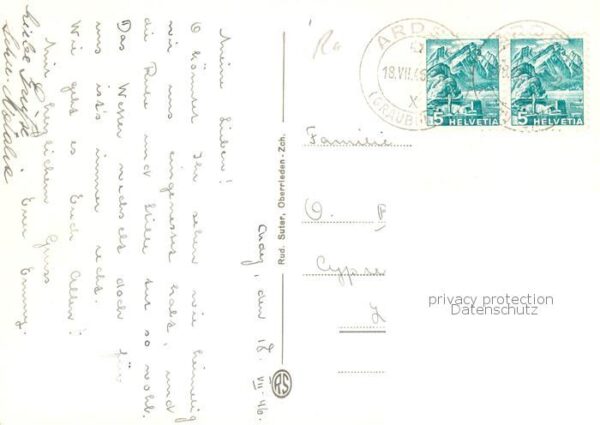 Ardez, den 18. VII - 46.
Meine Lieben!
O könnten Ihr sehen wie heimelig
wir uns eingenestet habt, und
die Ruhe und Stille tut so wohl.
Das Wetter wechselt doch für
uns ist's immer recht.
Wie geht es Euch Allen?
Mit herzlichem Gruss
Eure Emmy.
Liebe Grüße
Eure
Rud. Suter, Oberrieden-Zch.
RS
ARDEZ
18.VII.46
X
(GRAUB
5 HELVETIA
5 HELVETIA
Familie
O. F
privacy protection
Datenschutz